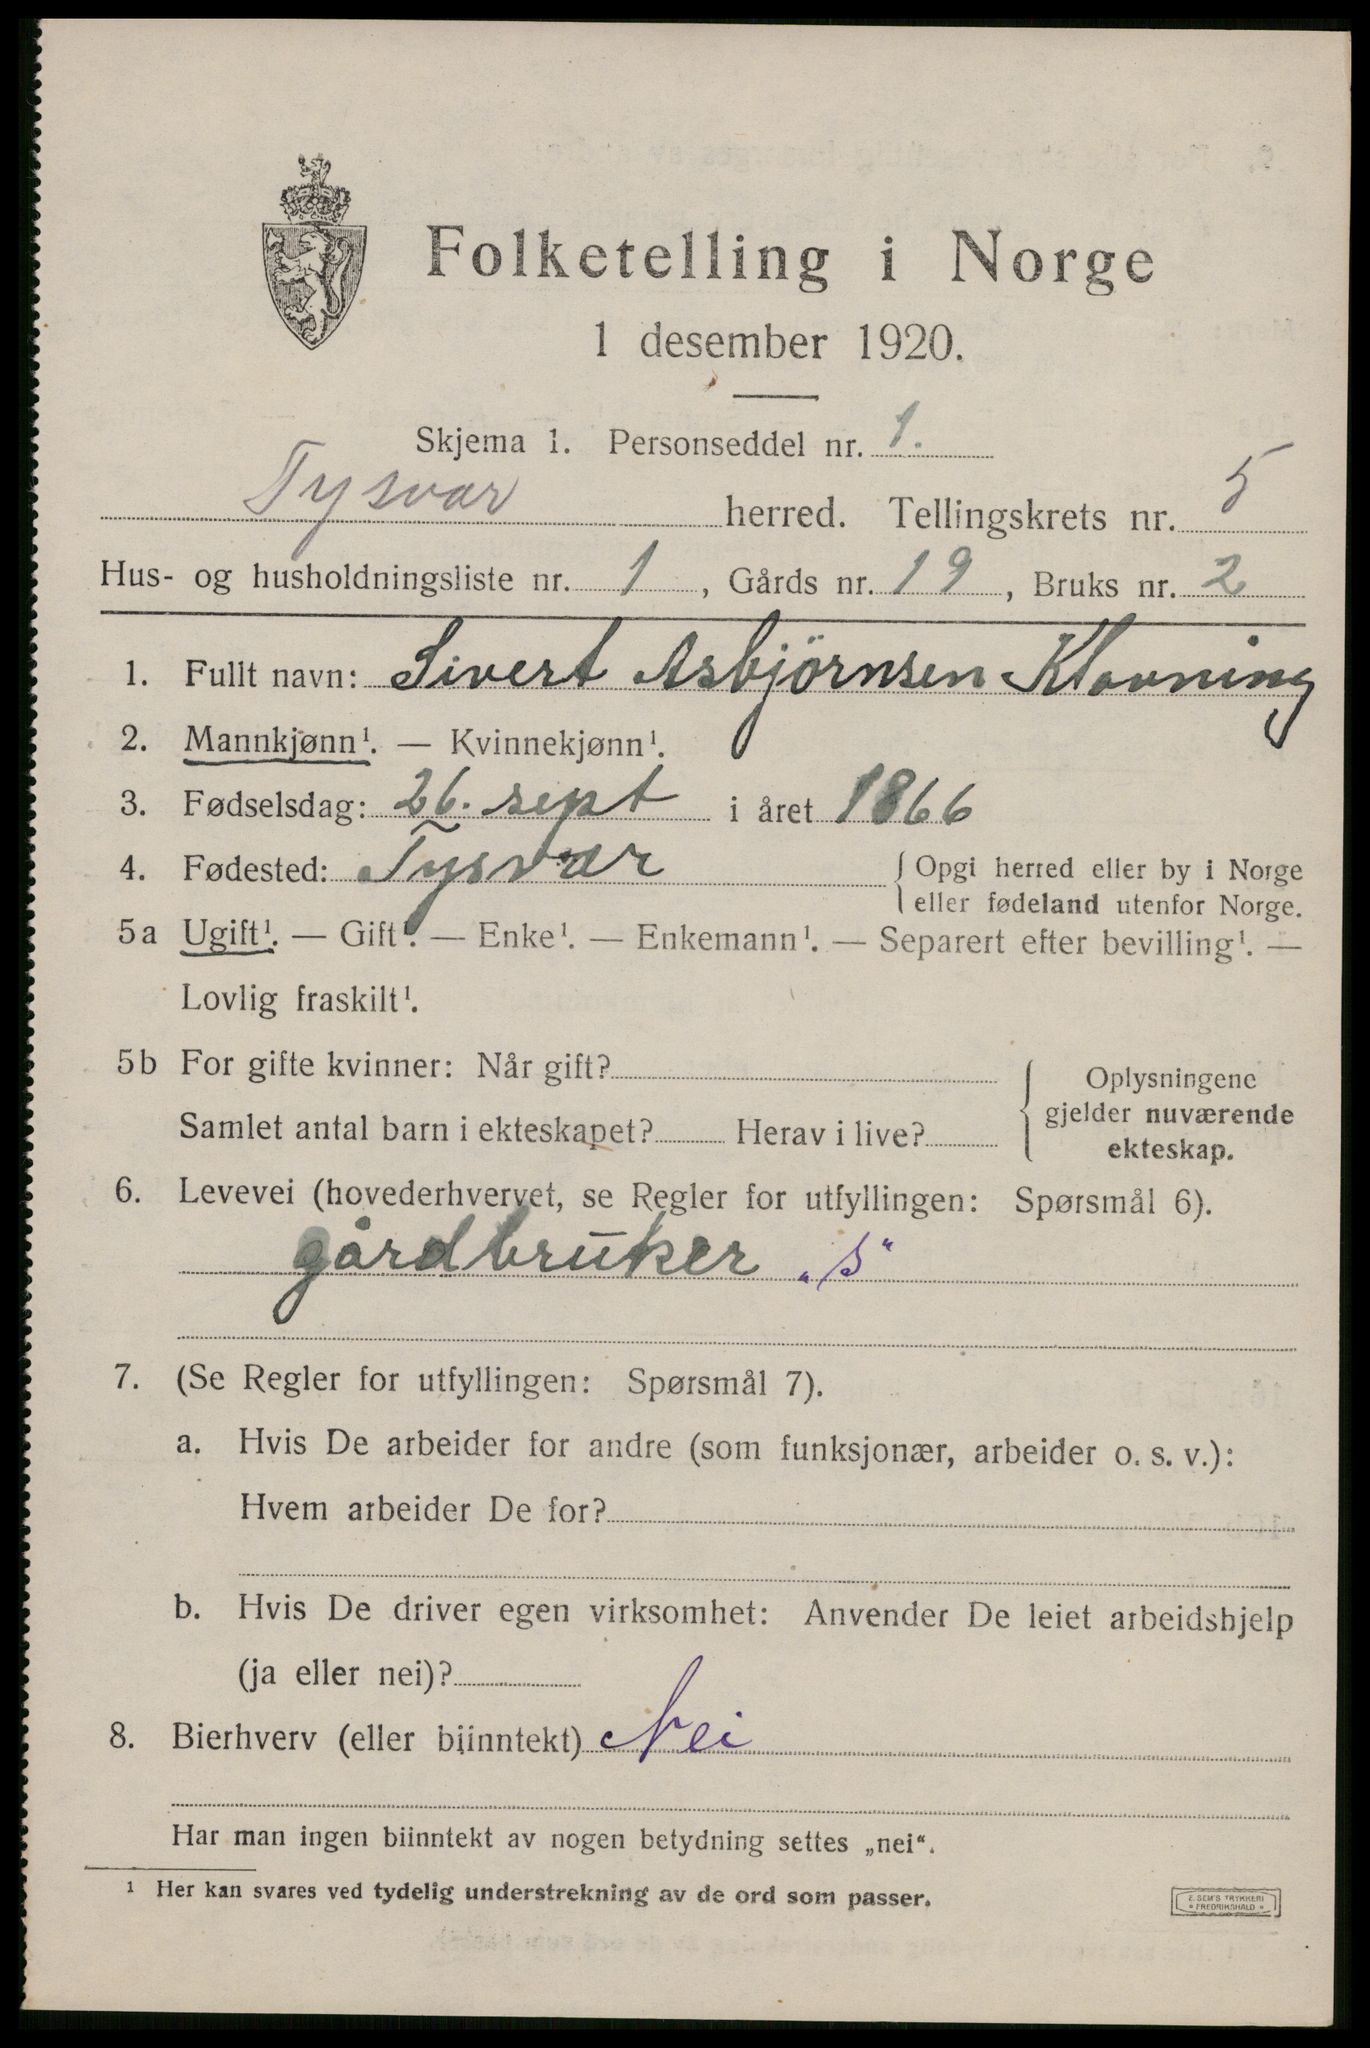 Folketelling i Norge
1 desember 1920.
Skjema 1. Personseddel nr. 1.
Tysvær herred. Tellingskrets nr. 5
Hus- og husholdningsliste nr. 1, Gårds nr. 19, Bruks nr. 2
1. Fullt navn: Sivert Asbjörnsen Klovning
2. Mannkjønn¹. — Kvinnekjønn¹.
3. Fødselsdag: 26. sept i året 1866
4. Fødested: Tysvær { Opgi herred eller by i Norge
eller fødeland utenfor Norge.
5a Ugift¹. — Gift¹. — Enke¹. — Enkemann¹. — Separert efter bevilling¹. —
Lovlig fraskilt¹.
5b For gifte kvinner: Når gift?
Samlet antal barn i ekteskapet? Herav i live?
{ Oplysningene
gjelder nuværende
ekteskap.
6. Levevei (hovederhvervet, se Regler for utfyllingen: Spørsmål 6).
gårdbruker „S“
7. (Se Regler for utfyllingen: Spørsmål 7).
a. Hvis De arbeider for andre (som funksjonær, arbeider o. s. v.):
Hvem arbeider De for?
b. Hvis De driver egen virksomhet: Anvender De leiet arbeidshjelp
(ja eller nei)?
8. Bierhverv (eller biinntekt) Nei
Har man ingen biinntekt av nogen betydning settes „nei“.
¹ Her kan svares ved tydelig understrekning av de ord som passer.
E. SEM'S TRYKKERI
* FREDRIKSHALD *